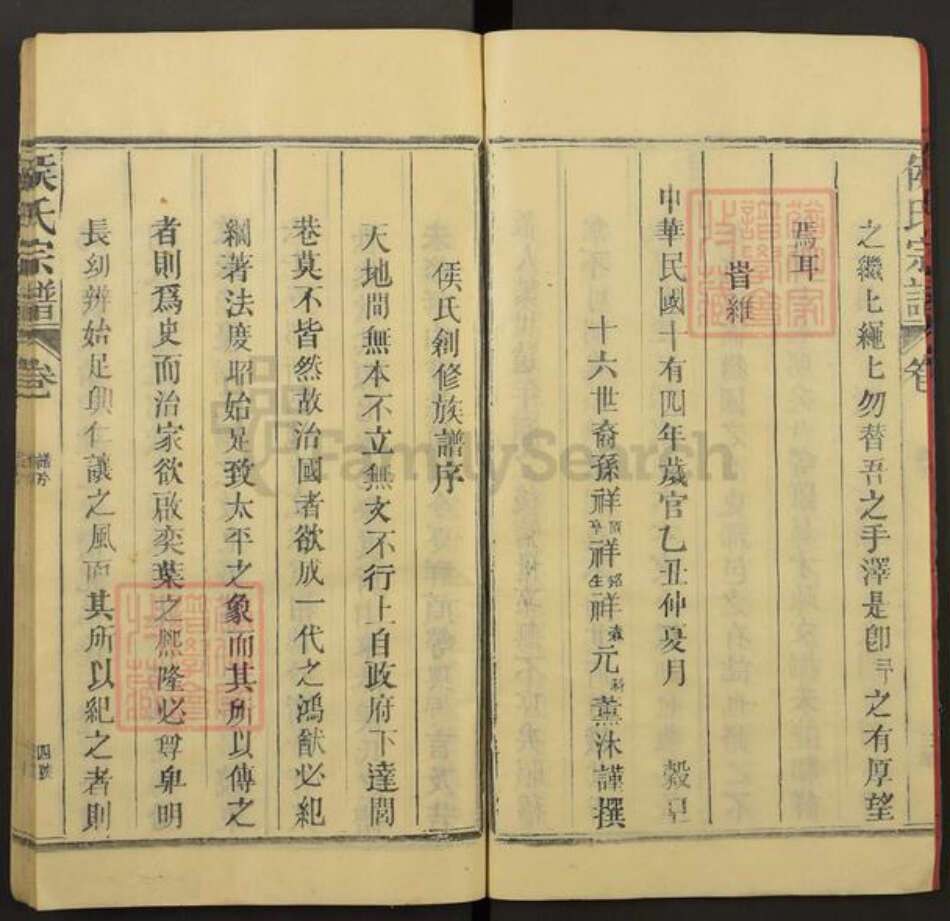 之繼上繩上勿替吾之手澤是卽予之有厚望
焉耳
峕維
中華民國十有四年歲官乙丑仲夏月 穀旦
十六世裔孫祥 祥 祥 元 薰沐謹撰
侯氏宗譜 卷
侯氏創修族譜序
天地間無本不立無文不行上自政府下達閭
巷莫不皆然故治國者欲成一代之鴻猷必紀
綱著法度昭始足致太平之象而其所以傳之
者則爲史而治家欲啟奕葉之熙隆必尊卑明
長幼辨始足興仁讓之風而其所以紀之者則
侯氏宗譜 卷
FamilySearch